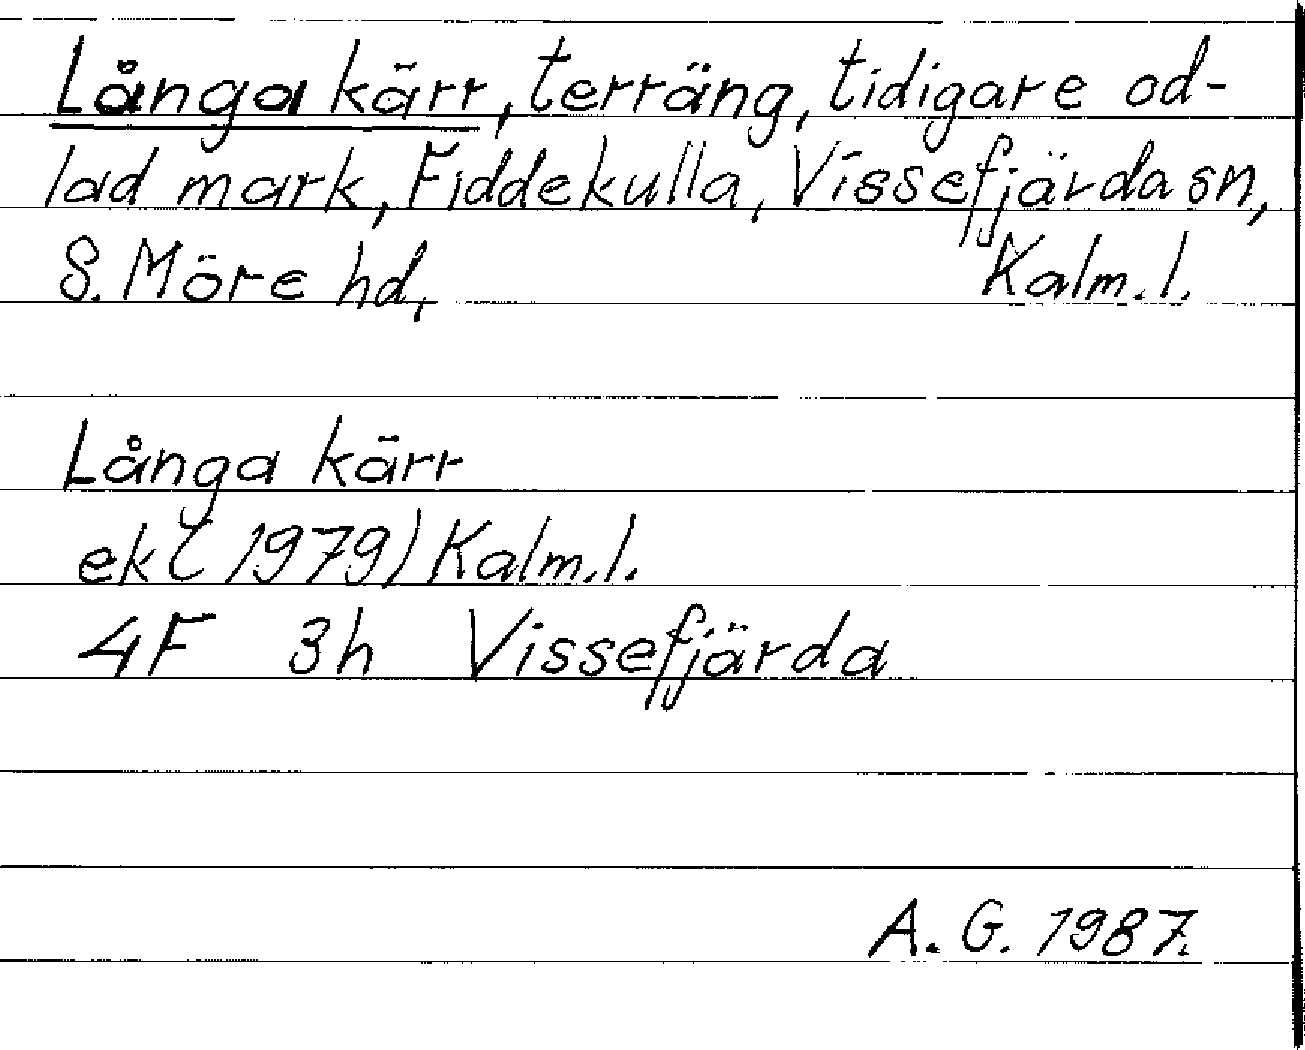 Långa kärr, terräng, tidigare od-
lad mark, Fiddekulla, Vissefjärda sn,
S. Möre hd, Kalm. l.
Långa kärr
ek (1979) Kalm. l.
4F 3h Vissefjärda
A. G. 1987.